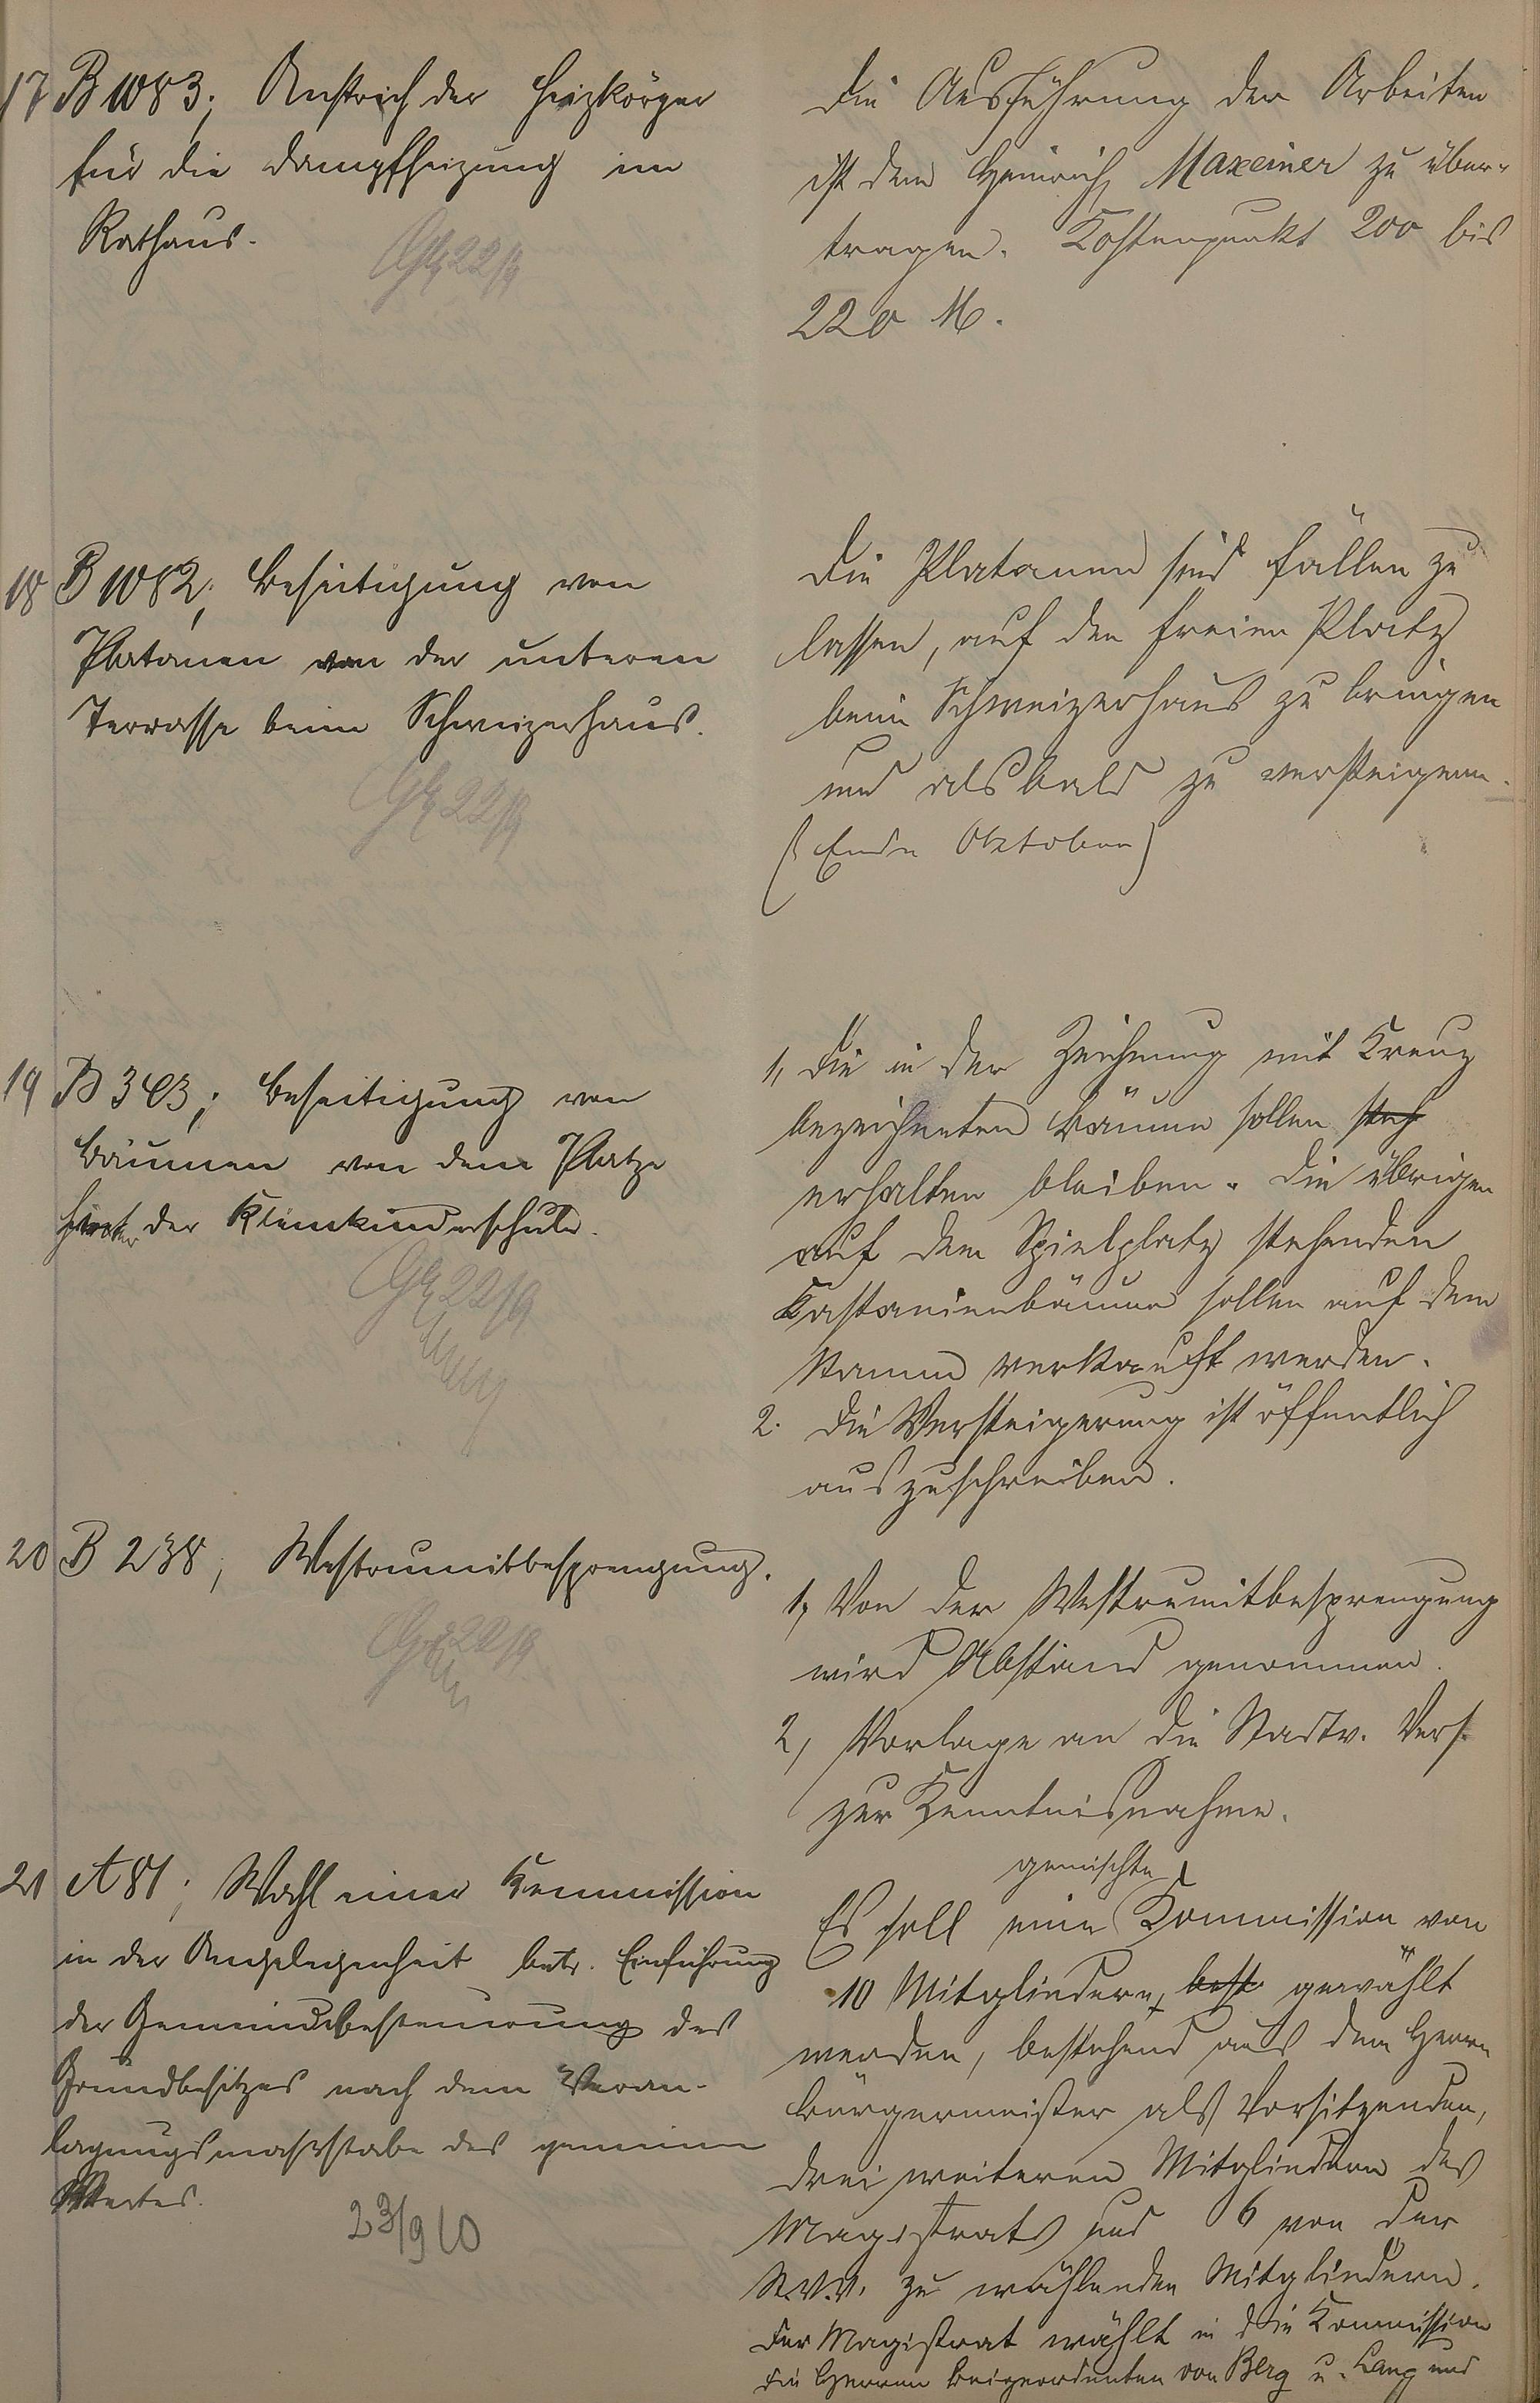 17 B 1083; Anstrich der Heizkörper
für die Dampfheizung im
Rathaus.
22/9
Die Ausführung der Arbeiten
ist dem Heinrich Maxeiner zu über-
tragen. Kostenpunkt 200 bis
220 M.
18 B 1082; Beseitigung von
Platanen von der unteren
Terrasse beim Schweizerhaus.
22/9
Die Platanen sind fällen zu
lassen, auf den freien Platz
beim Schweizerhaus zu bringen
und alsbald zu versteigern.
(Ende Oktober)
19 B 303; Beseitigung von
Bäumen von dem Platze
hinter der Kleinkinderschule.
22/9
1, Die in der Zeichnung mit Kreuz
bezeichneten Bäume sollen steh
erhalten bleiben. Die übrigen
auf dem Spielplatz stehenden
Kastanienbäume sollen auf dem
Stamm verkauft werden.
2. Die Versteigerung ist öffentlich
auszuschreiben.
20 B 238; Westrumitbesprengung.
22/9
1, Von der Westrumitbesprengung
wird Abstand genommen.
2, Vorlage an die Stadtv. Vers.
zur Kenntnisnahme.
21 A 81; Wahl einer Kommission
in der Angelegenheit betr. Einführung
der Gemeindebesteuerung des
Grundbesitzes nach dem Veran-
lagungsmassstabe des gemeinen
Wertes.
23/9 10
gemischte
Es soll eine Kommission von
10 Mitgliedern, best. gewählt
werden, bestehend aus dem Herrn
Bürgermeister als Vorsitzenden,
drei weiteren Mitgliedern des
Magistrats und 6 von der
St.V.V. zu wählenden Mitgliedern.
Der Magistrat wählt in die Kommission
die Herren Beigeordneten von Berg u. Lang und